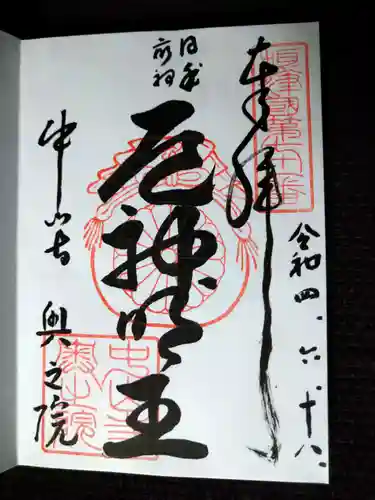 奉拝
令和四、六、十八、
日本
前神
厄神明王
中山寺 奥之院